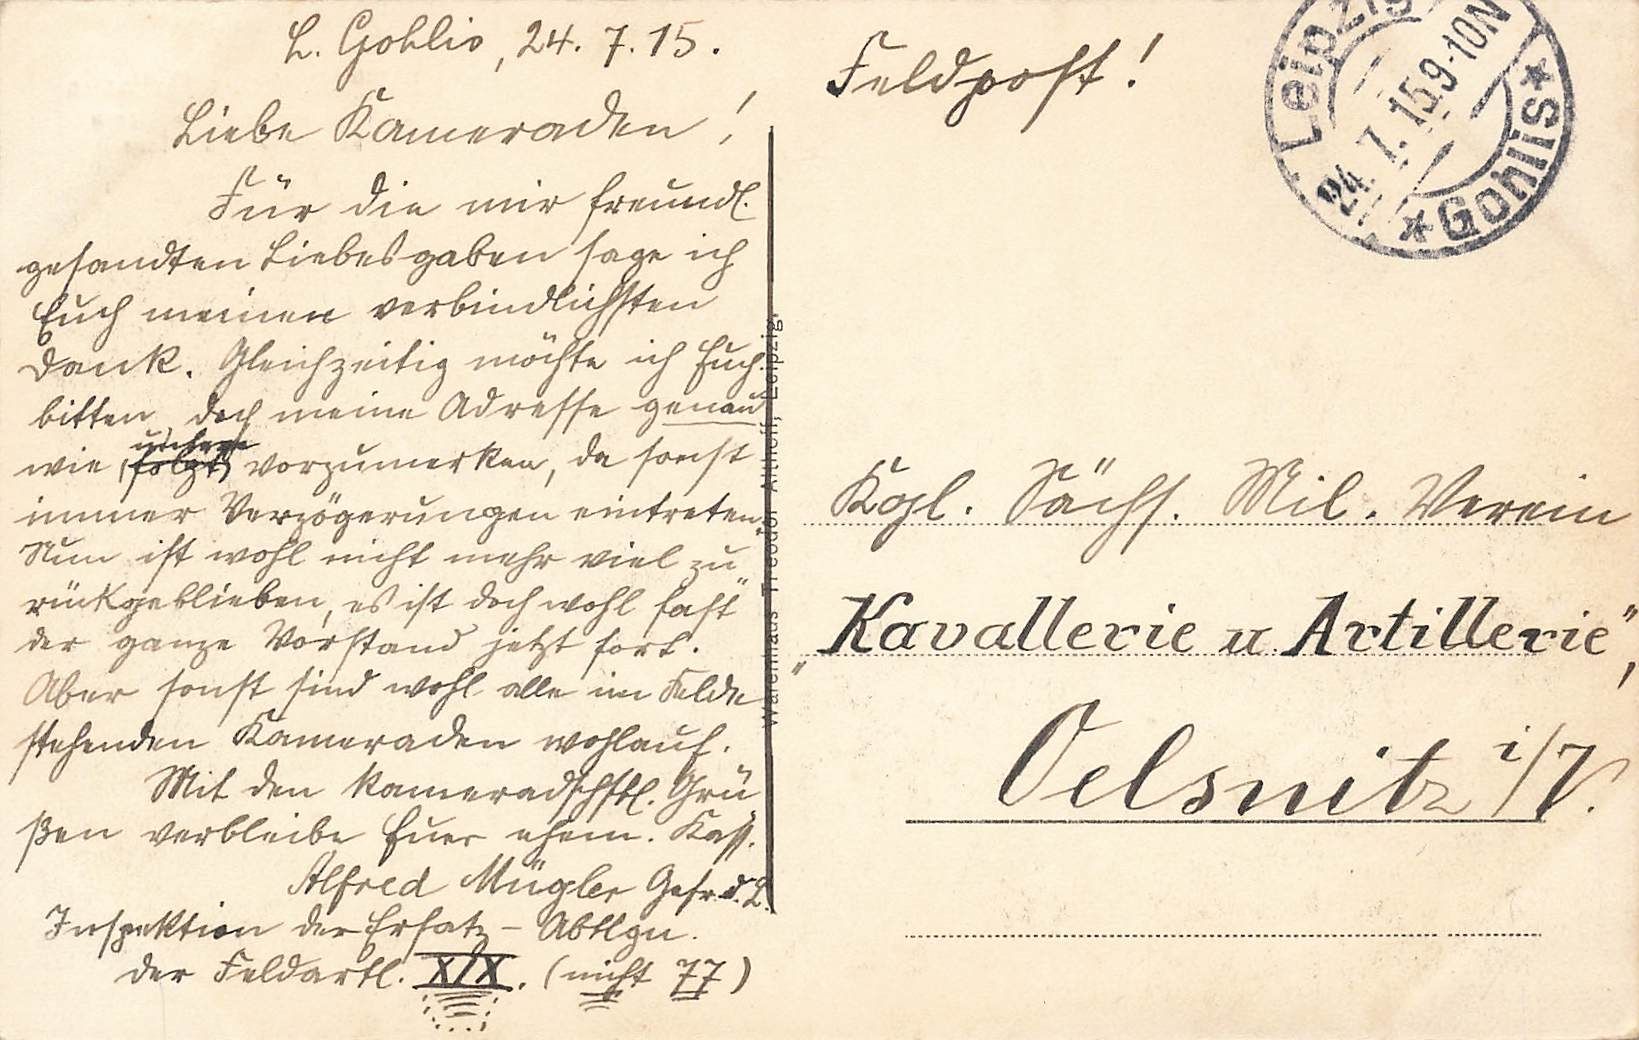 L. Gohlis, 24. 7. 15.
Liebe Kameraden!
Für die mir freundl.
gesandten Liebesgaben sage ich
Euch meinen verbindlichsten
Dank. Gleichzeitig möchte ich Euch
bitten, doch meine Adresse genau
wie folgt vorzumerken, da sonst
immer Verzögerungen eintreten.
Nun ist wohl nicht mehr viel zu
rückgeblieben, es ist doch wohl fast
der ganze Vorstand jetzt fort.
Aber sonst sind wohl alle im Felde
stehenden Kameraden wohlauf.
Mit den kameradschftl. Grü
ßen verbleibe Euer ehem. Kass.
Alfred Mügler Gefr. d. L.
Inspektion der Ersatz-Abtlgn.
der Feldartl. XIX. (nicht 77)
Warenhaus Theodor Althoff, Leipzig.
Feldpost!
Leipzig
24. 7. 15 9-10N
* Gohlis *
Kgl. Sächs. Mil. Verein
„Kavallerie u Artillerie",
Oelsnitz i/V.